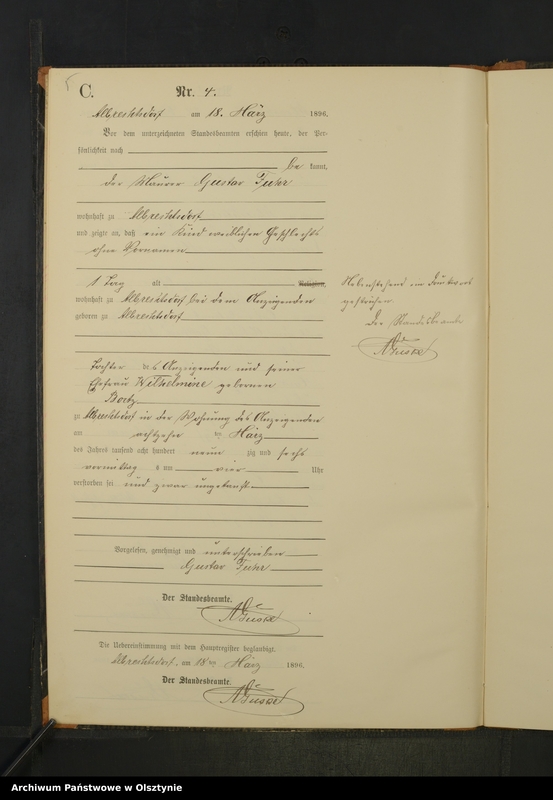 C.
Nr. 4.
Albrechtsdorf am 18. März 1896.
Vor dem unterzeichneten Standesbeamten erschien heute, der Per-
sönlichkeit nach
be kannt,
der Maurer Gustav Fuhr
wohnhaft zu Albrechtsdorf
und zeigte an, daß ein Kind weiblichen Geschlechts
ohne Vornamen
1 Tag alt Religion,
wohnhaft zu Albrechtsdorf bei dem Anzeigenden
geboren zu Albrechtsdorf
Tochter des Anzeigenden und seiner
Ehefrau Wilhelmine geborenen
zu Albrechtsdorf in der Wohnung des Anzeigenden
am achtzehn ten März
des Jahres tausend acht hundert neun zig und sechs
vormittag s um vier Uhr
verstorben sei und zwar ungetauft
Vorgelesen, genehmigt und unterschrieben
Gustav Fuhr
Der Standesbeamte.
Die Uebereinstimmung mit dem Hauptregister beglaubigt.
Albrechtsdorf, am 18ten März 1896.
Der Standesbeamte.
Nebenstehend ein Druckwort
gestrichen.
Der Standesbeamte
Archiwum Państwowe w Olsztynie